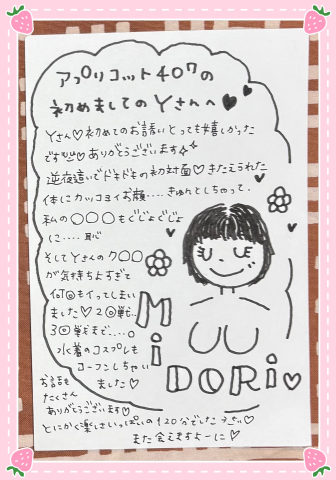 アプリコット407の
初めましてのYさんへ♥♥
Yさん♡初めてのお誘いとっても嬉しかった
です♡ありがとうございます
逆夜這いでドキドキの初対面♡きたえられた
体にカッコヨイお顔....きゅんとしちゃって、
私の〇〇〇もぐじょぐじょ
に....恥
そしてYさんのク〇〇
が気持ちよすぎて
何回もイってしまい
ました♡2回戦..
3回戦まで....。
水着のコスプレも
コーフンしちゃい
ました♡
お話も
たくさん
ありがとうございます♡
とにかく楽しさいっぱいの120分でした
また会えますよーに♡
MiDORi♡